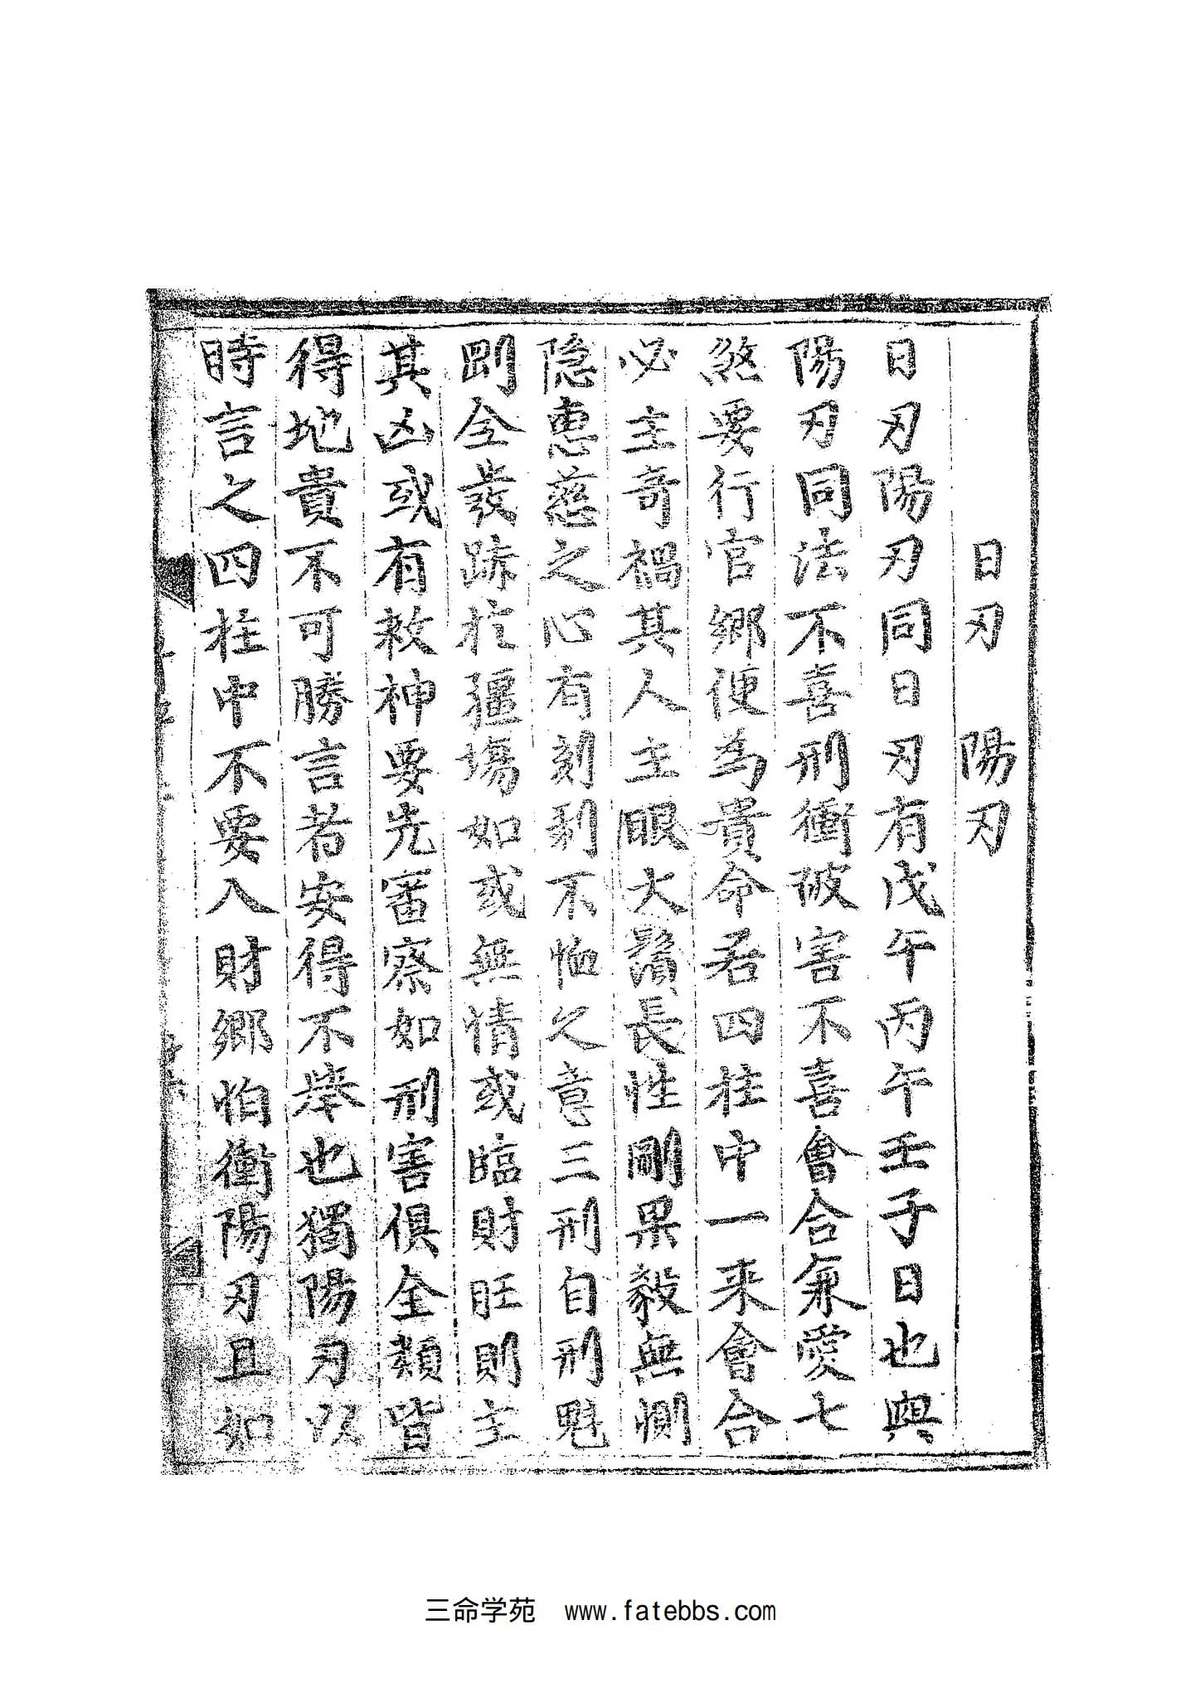 日刃　陽刃
日刃陽刃同日刃有戊午丙午壬子日也與
陽刃同法不喜刑衝破害不喜會合兼愛七
煞要行官鄉便為貴命若四柱中一来會合
必主奇禍其人主眼大鬚長性剛果毅無惻
隐恵慈之心有刻剥不恤之意三刑自刑魁
罡全發跡於疆塲如或無情或臨財旺則主
其凶或有救神要先審察如刑害俱全類皆
得地貴不可勝言若安得不举也獨陽刃以
時言之四柱中不要入財鄉怕衝陽刃且如
三命学苑　www.fatebbs.com